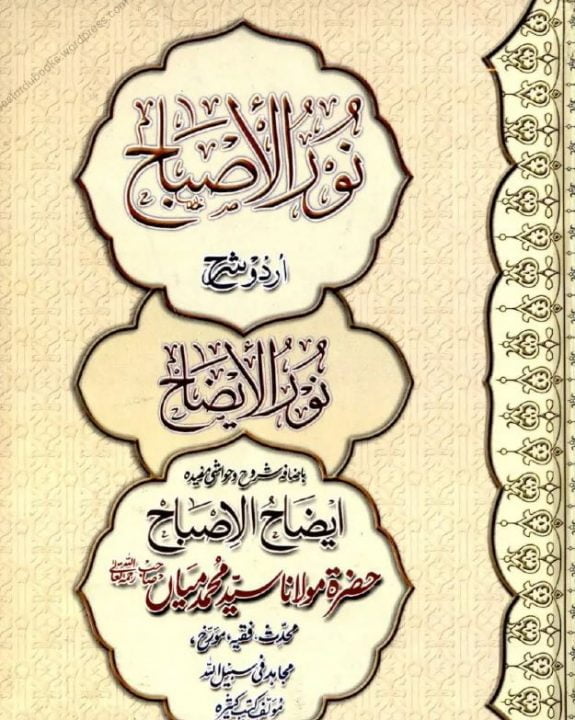 نُورُ الْأَصْبَاح
اُردُو شرح
نُورُ الْأِيضَاح
باضافہ شروح و حواشی مفیدہ
ايضاحُ الِاصباح
حضرة مولانا سيّد محمد ميال صاحب رحمہ اللہ تعالیٰ
محدث، فقیہ، مورّخ،
مجاہد فی سبیل اللہ
مؤلف کتب کثیرہ